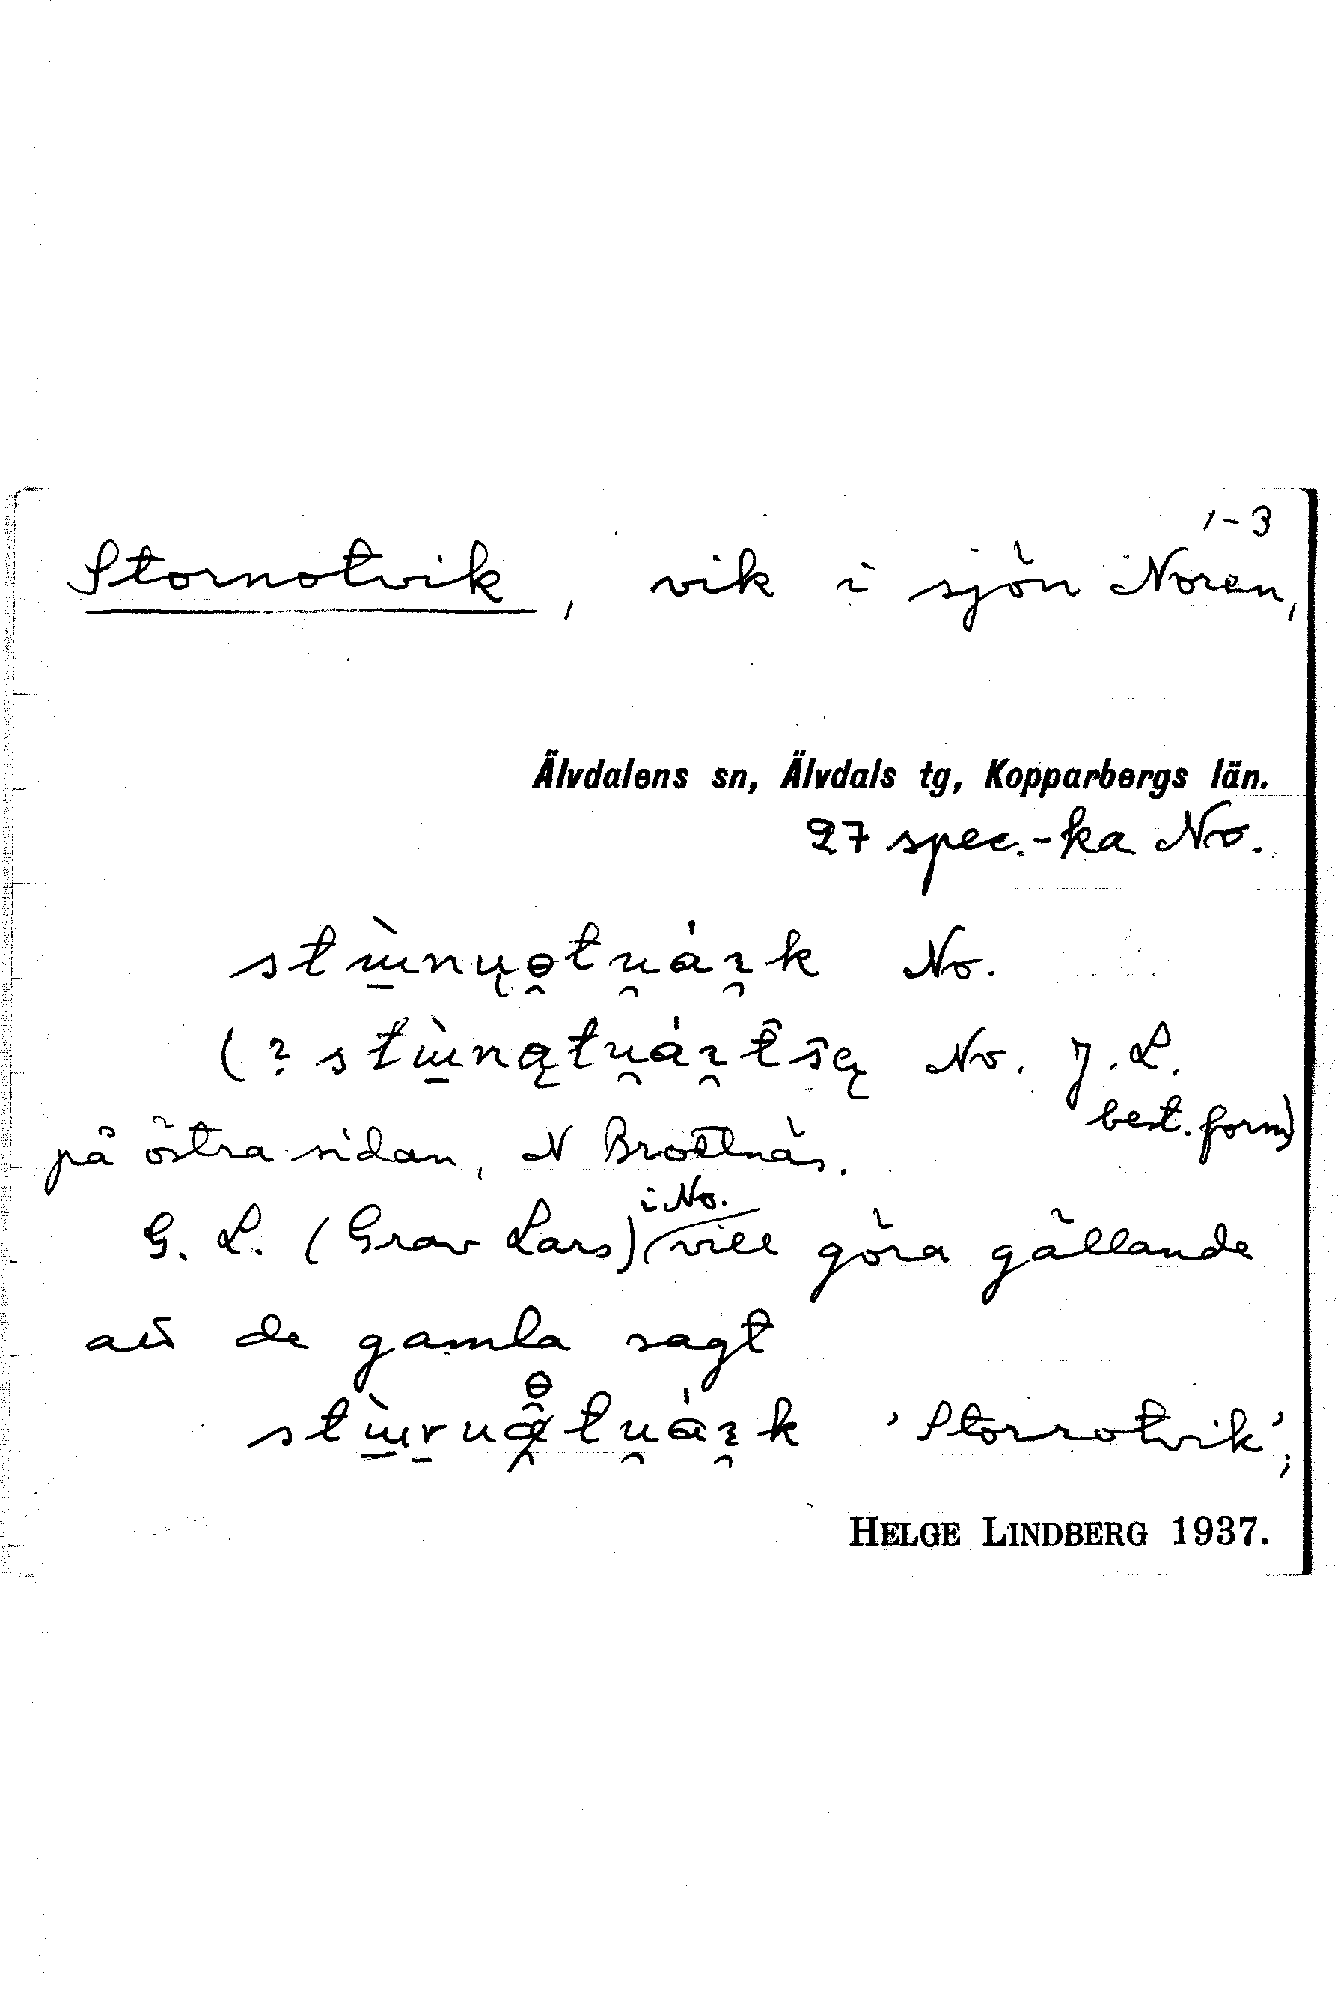 1-3
Stornotvik, vik i sjön Noren,
Älvdalens sn, Älvdals tg, Kopparbergs län.
27 spec.-ka No.
No.
(? No. J. L.
best. form)
på östra sidan, N Brottnäs.
i No.
G. L. (Grav Lars) vill göra gällande
att de gamla sagt
'Storrotvik';
HELGE LINDBERG 1937.